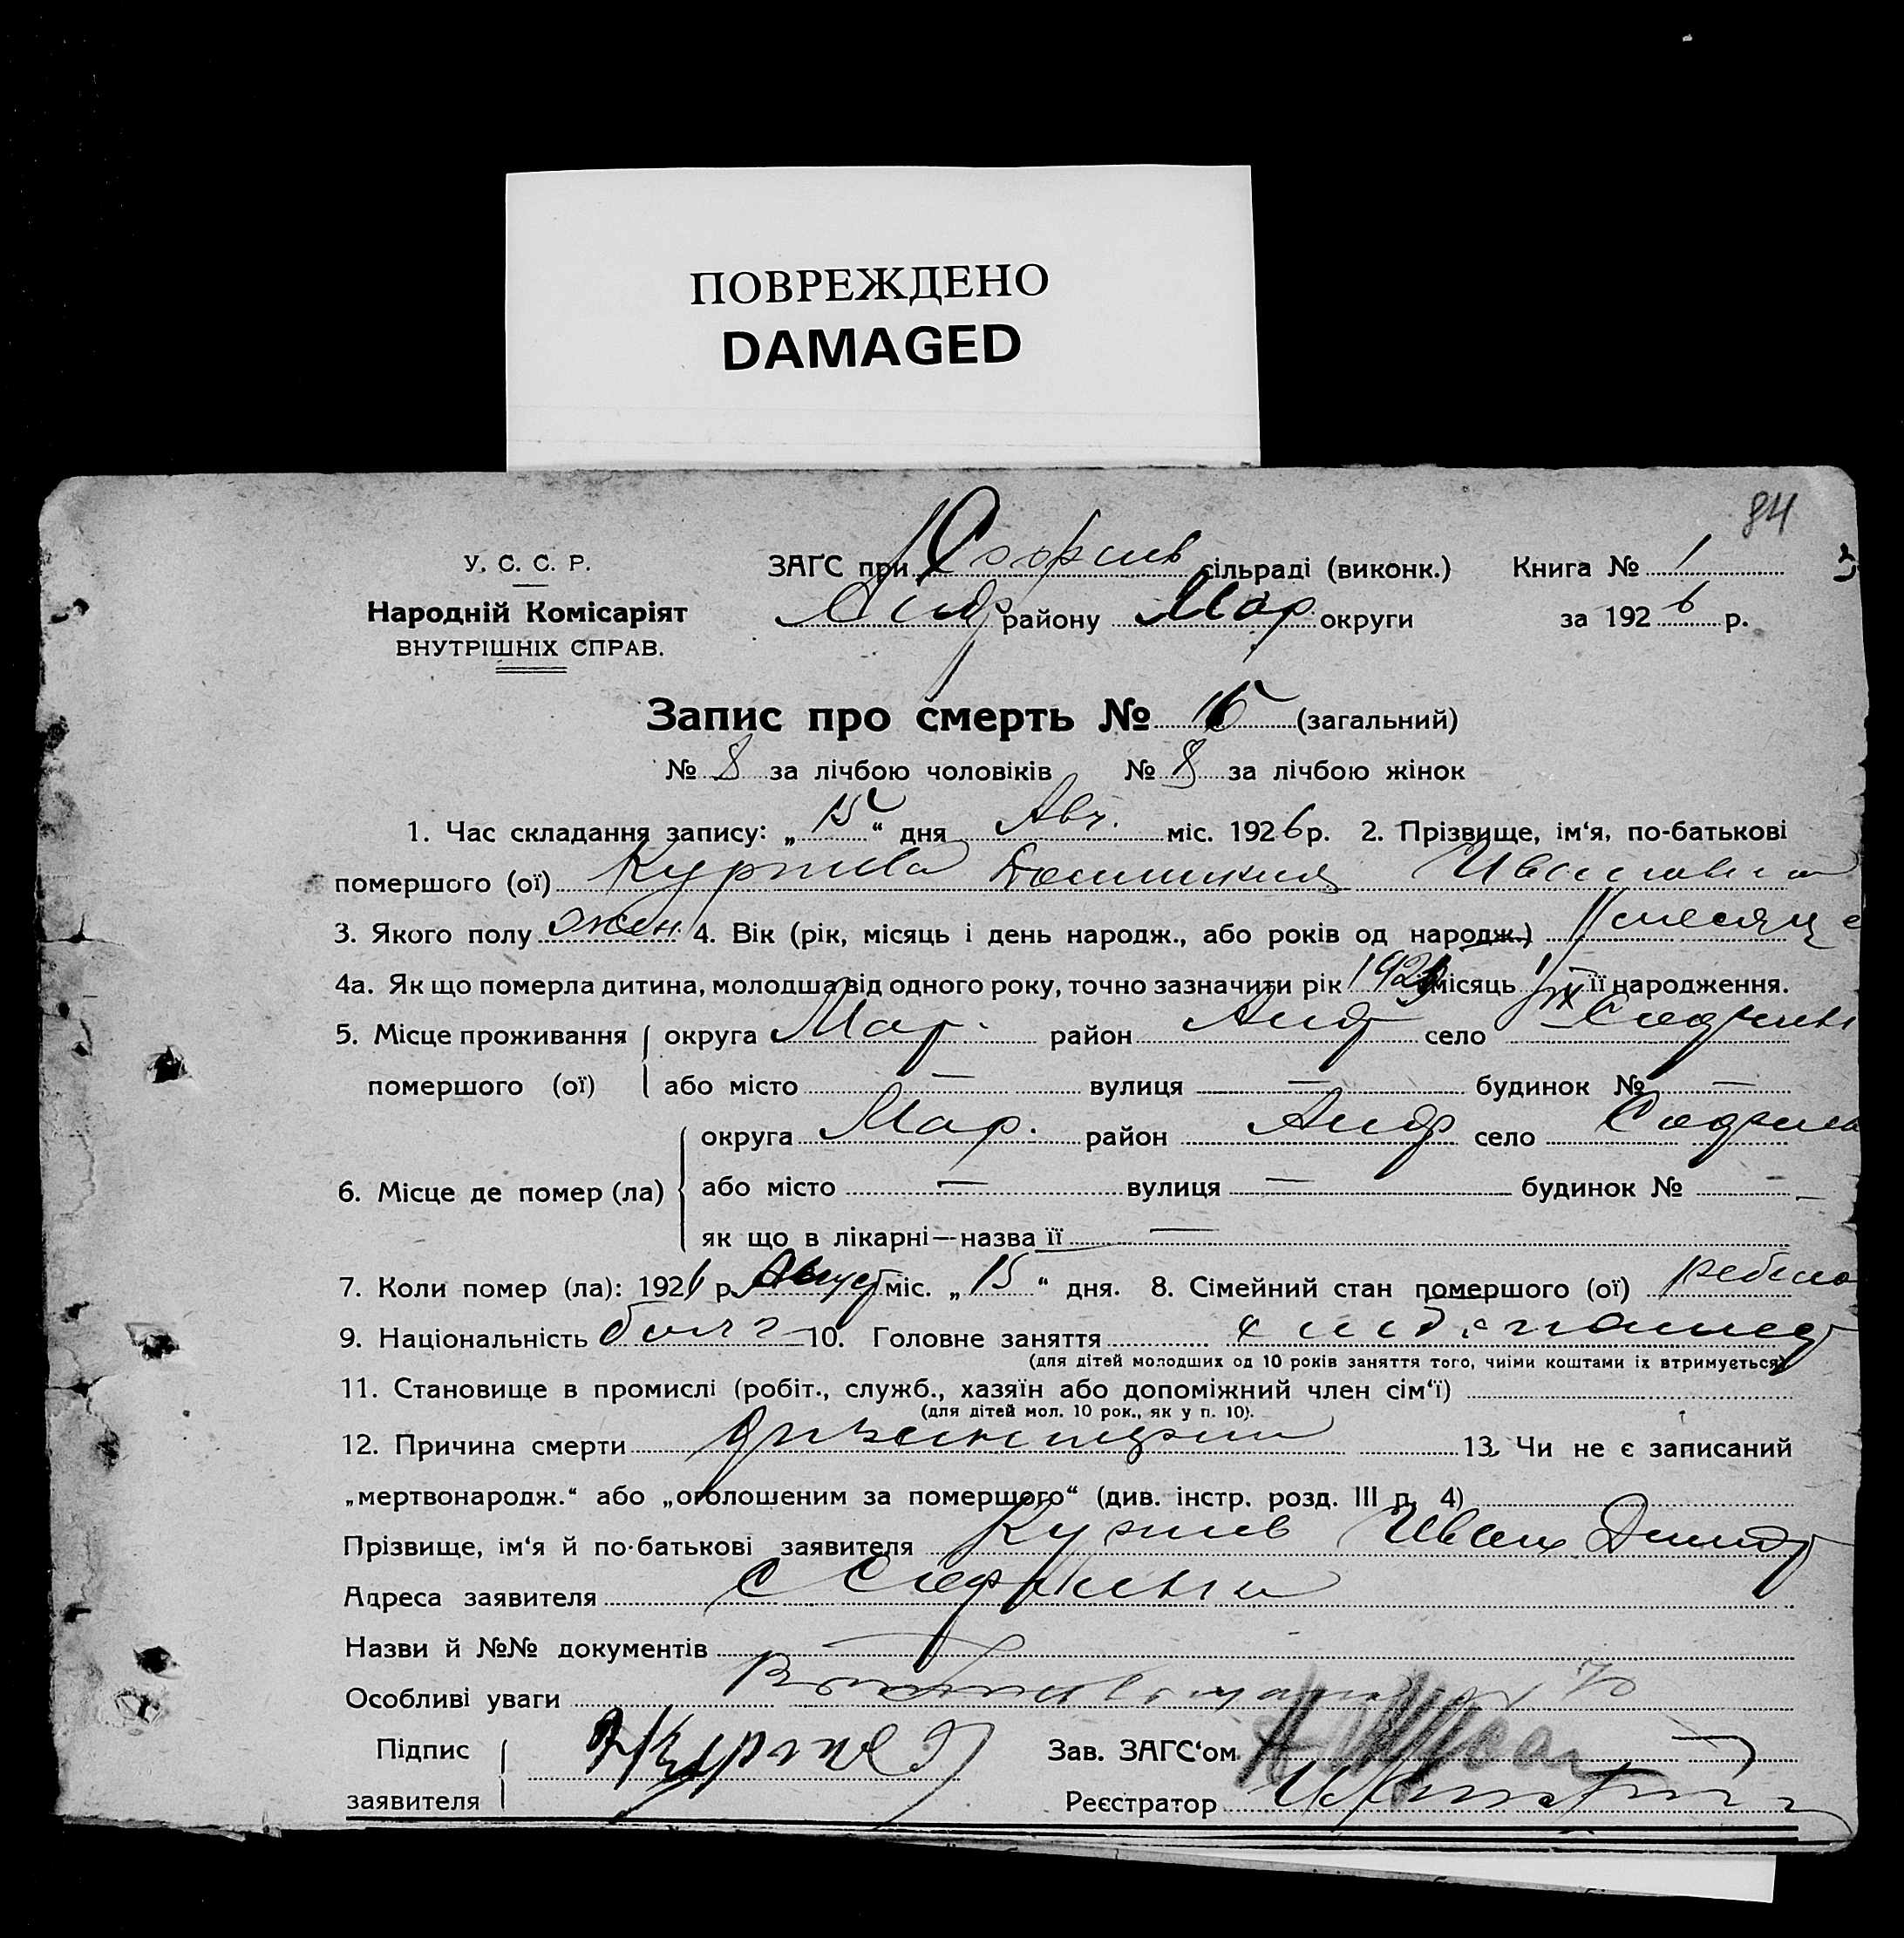 ПОВРЕЖДЕНО
DAMAGED
84
У. С. С. Р.
Народній Комісаріят
ВНУТРІШНІХ СПРАВ.
ЗАГС при Софиев сільраді (виконк.) Книга № 1
Андр району Мар. округи за 1926 р.
Запис про смерть № 16 (загальний)
№ 8 за лічбою чоловіків № 8 за лічбою жінок
1. Час складання запису: „15“ дня Авг. міс. 1926 р. 2. Прізвище, ім‘я, по-батькові
помершого (ої) Ивановна
3. Якого полу жен. 4. Вік (рік, місяць і день народж., або років од народж.) 11 месяце
4а. Як що померла дитина, молодша від одного року, точно зазначити рік місяць її народження.
5. Місце проживання округа Мар. район Андр село
помершого (ої) або місто — вулиця — будинок № —
округа Мар. район Андр село
6. Місце де помер (ла) або місто — вулиця — будинок № —
як що в лікарні—назва її —
7. Коли помер (ла): 1926 р. Август міс. „15“ дня. 8. Сімейний стан помершого (ої) ребено
9. Національність болг 10. Головне заняття
(для дітей молодших од 10 років заняття того, чиїми коштами їх втримується)
11. Становище в промислі (робіт., служб., хазяїн або допоміжний член сім‘ї)
(для дітей мол. 10 рок., як у п. 10).
12. Причина смерти дизентерия 13. Чи не є записаний
„мертвонародж.“ або „оголошеним за помершого“ (див. інстр. розд. III п. 4)
Прізвище, ім‘я й по-батькові заявителя Иван Дмит
Адреса заявителя с
Назви й №№ документів
Особливі уваги
Підпис
заявителя
Зав. ЗАГС‘ом
Реєстратор